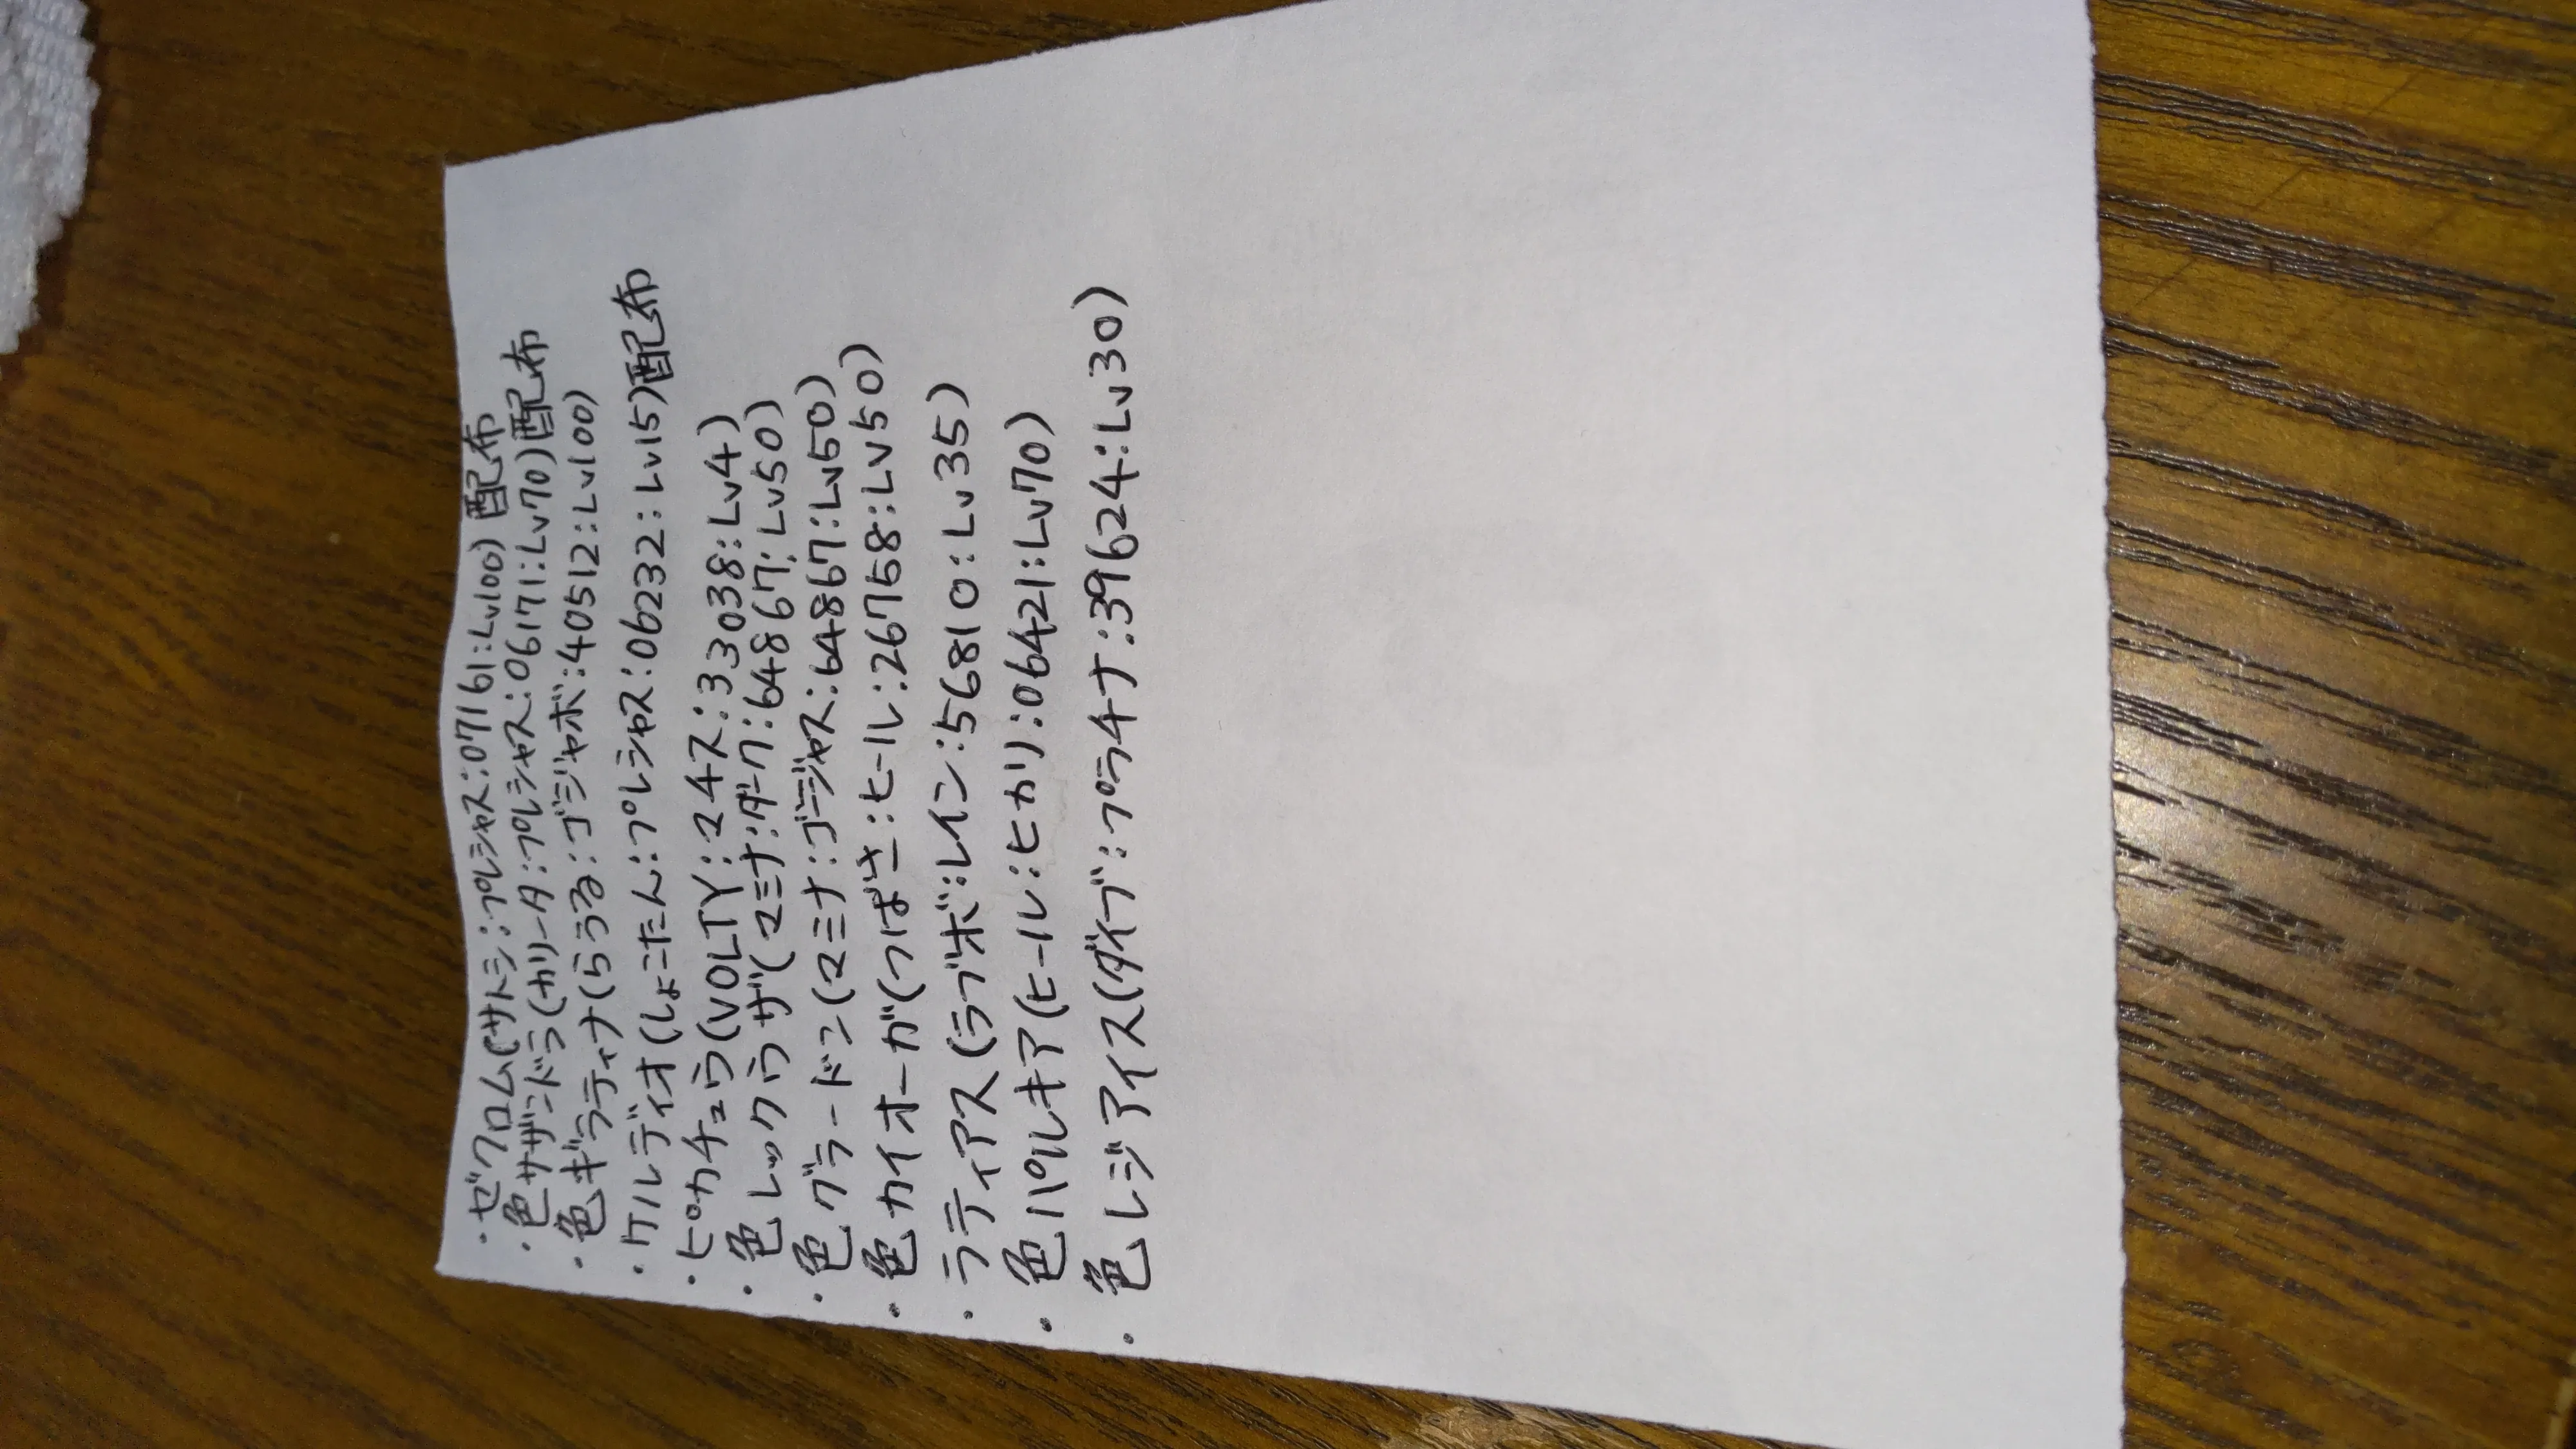 ・ゼクロム(サトシ:プレシャス:07161:Lv100)配布
・色サザンドラ(カリータ:プレシャス:06171:Lv70)配布
・色ギラティナ(らうる:ゴジャボ:40512:Lv100)
・ケルディオ(しょこたん:プレシャス:06232:Lv15)配布
・ピカチュウ(VOLTY:マイナス:33038:Lv4)
・色レックウザ(マミナ:ダーク:64867:Lv50)
・色グラードン(マミナ:ゴージャス:64867:Lv50)
・色カイオーガ(つばさ:ヒール:26758:Lv50)
・ラティアス(ラブボ:レイン:56810:Lv35)
・色パルキア(ヒール:ヒカリ:06421:Lv70)
・色レジアイス(ダイブ:プラチナ:39624:Lv30)